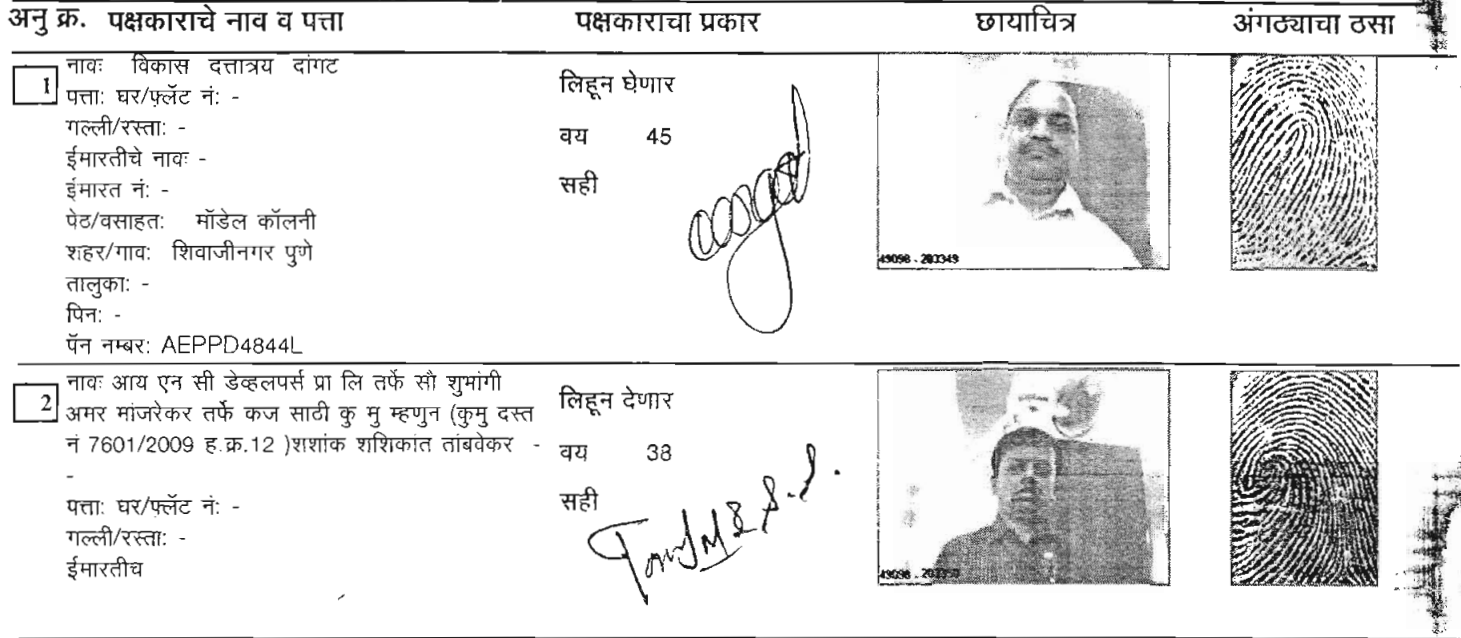 अनु क्र. पक्षकाराचे नाव व पत्ता पक्षकाराचा प्रकार छायाचित्र अंगठ्याचा ठसा
1
नावः विकास दत्तात्रय दांगट
पत्ताः घर/फ्लॅट नं: -
गल्ली/रस्ताः -
ईमारतीचे नावः -
ईमारत नं: -
पेठ/वसाहतः मॉडेल कॉलनी
शहर/गावः शिवाजीनगर पुणे
तालुकाः -
पिनः -
पॅन नम्बरः AEPPD4844L
लिहून घेणार
वय 45
सही
49098 - 203349
2
नावः आय एन सी डेव्हलपर्स प्रा लि तर्फे सौ शुभांगी
अमर मांजरेकर तर्फे कज साठी कु मु म्हणुन (कुमु दस्त
नं 7601/2009 ह.क्र.12 )शशांक शशिकांत तांबवेकर -
-
पत्ताः घर/फ्लॅट नं: -
गल्ली/रस्ताः -
ईमारतीच
लिहून देणार
वय 38
सही
49098 - 203350